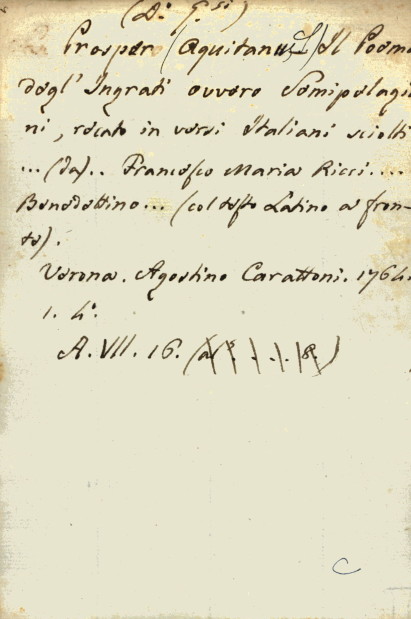 Prosper (Aquitanus) Il Poema
degl' Ingrati ovvero Semipelagia
ni, recato in versi Italiani sciolti
... (da).. Francesco Maria Ricci....
Benedettino... (col testo Latino a fron-
te).
Verona. Agostino Carattoni. 1764.
1. 4°.
A. VII. 16.
C